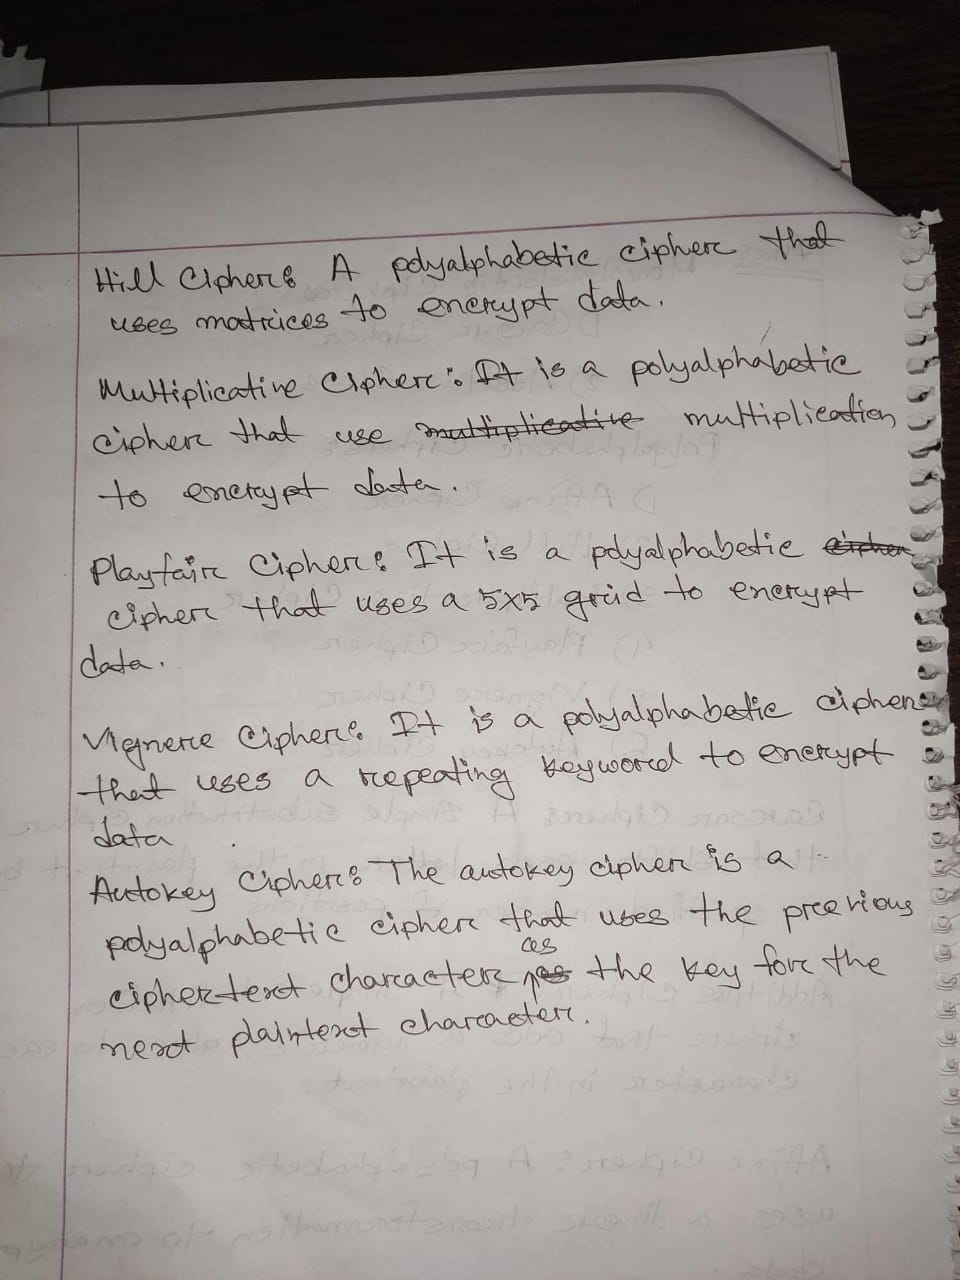 Hill Cipher: A polyalphabetic cipher that
uses matrices to encrypt data.
Multiplicative Cipher: It is a polyalphabetic
cipher that use multiplicative multiplication
to encrypt data.
Playfair Cipher: It is a polyalphabetic cipher
cipher that uses a 5x5 grid to encrypt
data.
Vignere Cipher: It is a polyalphabetic cipher
that uses a repeating keyword to encrypt
data
Autokey Cipher: The autokey cipher is a
polyalphabetic cipher that uses the previous
as
ciphertext character the key for the
next plaintext character.